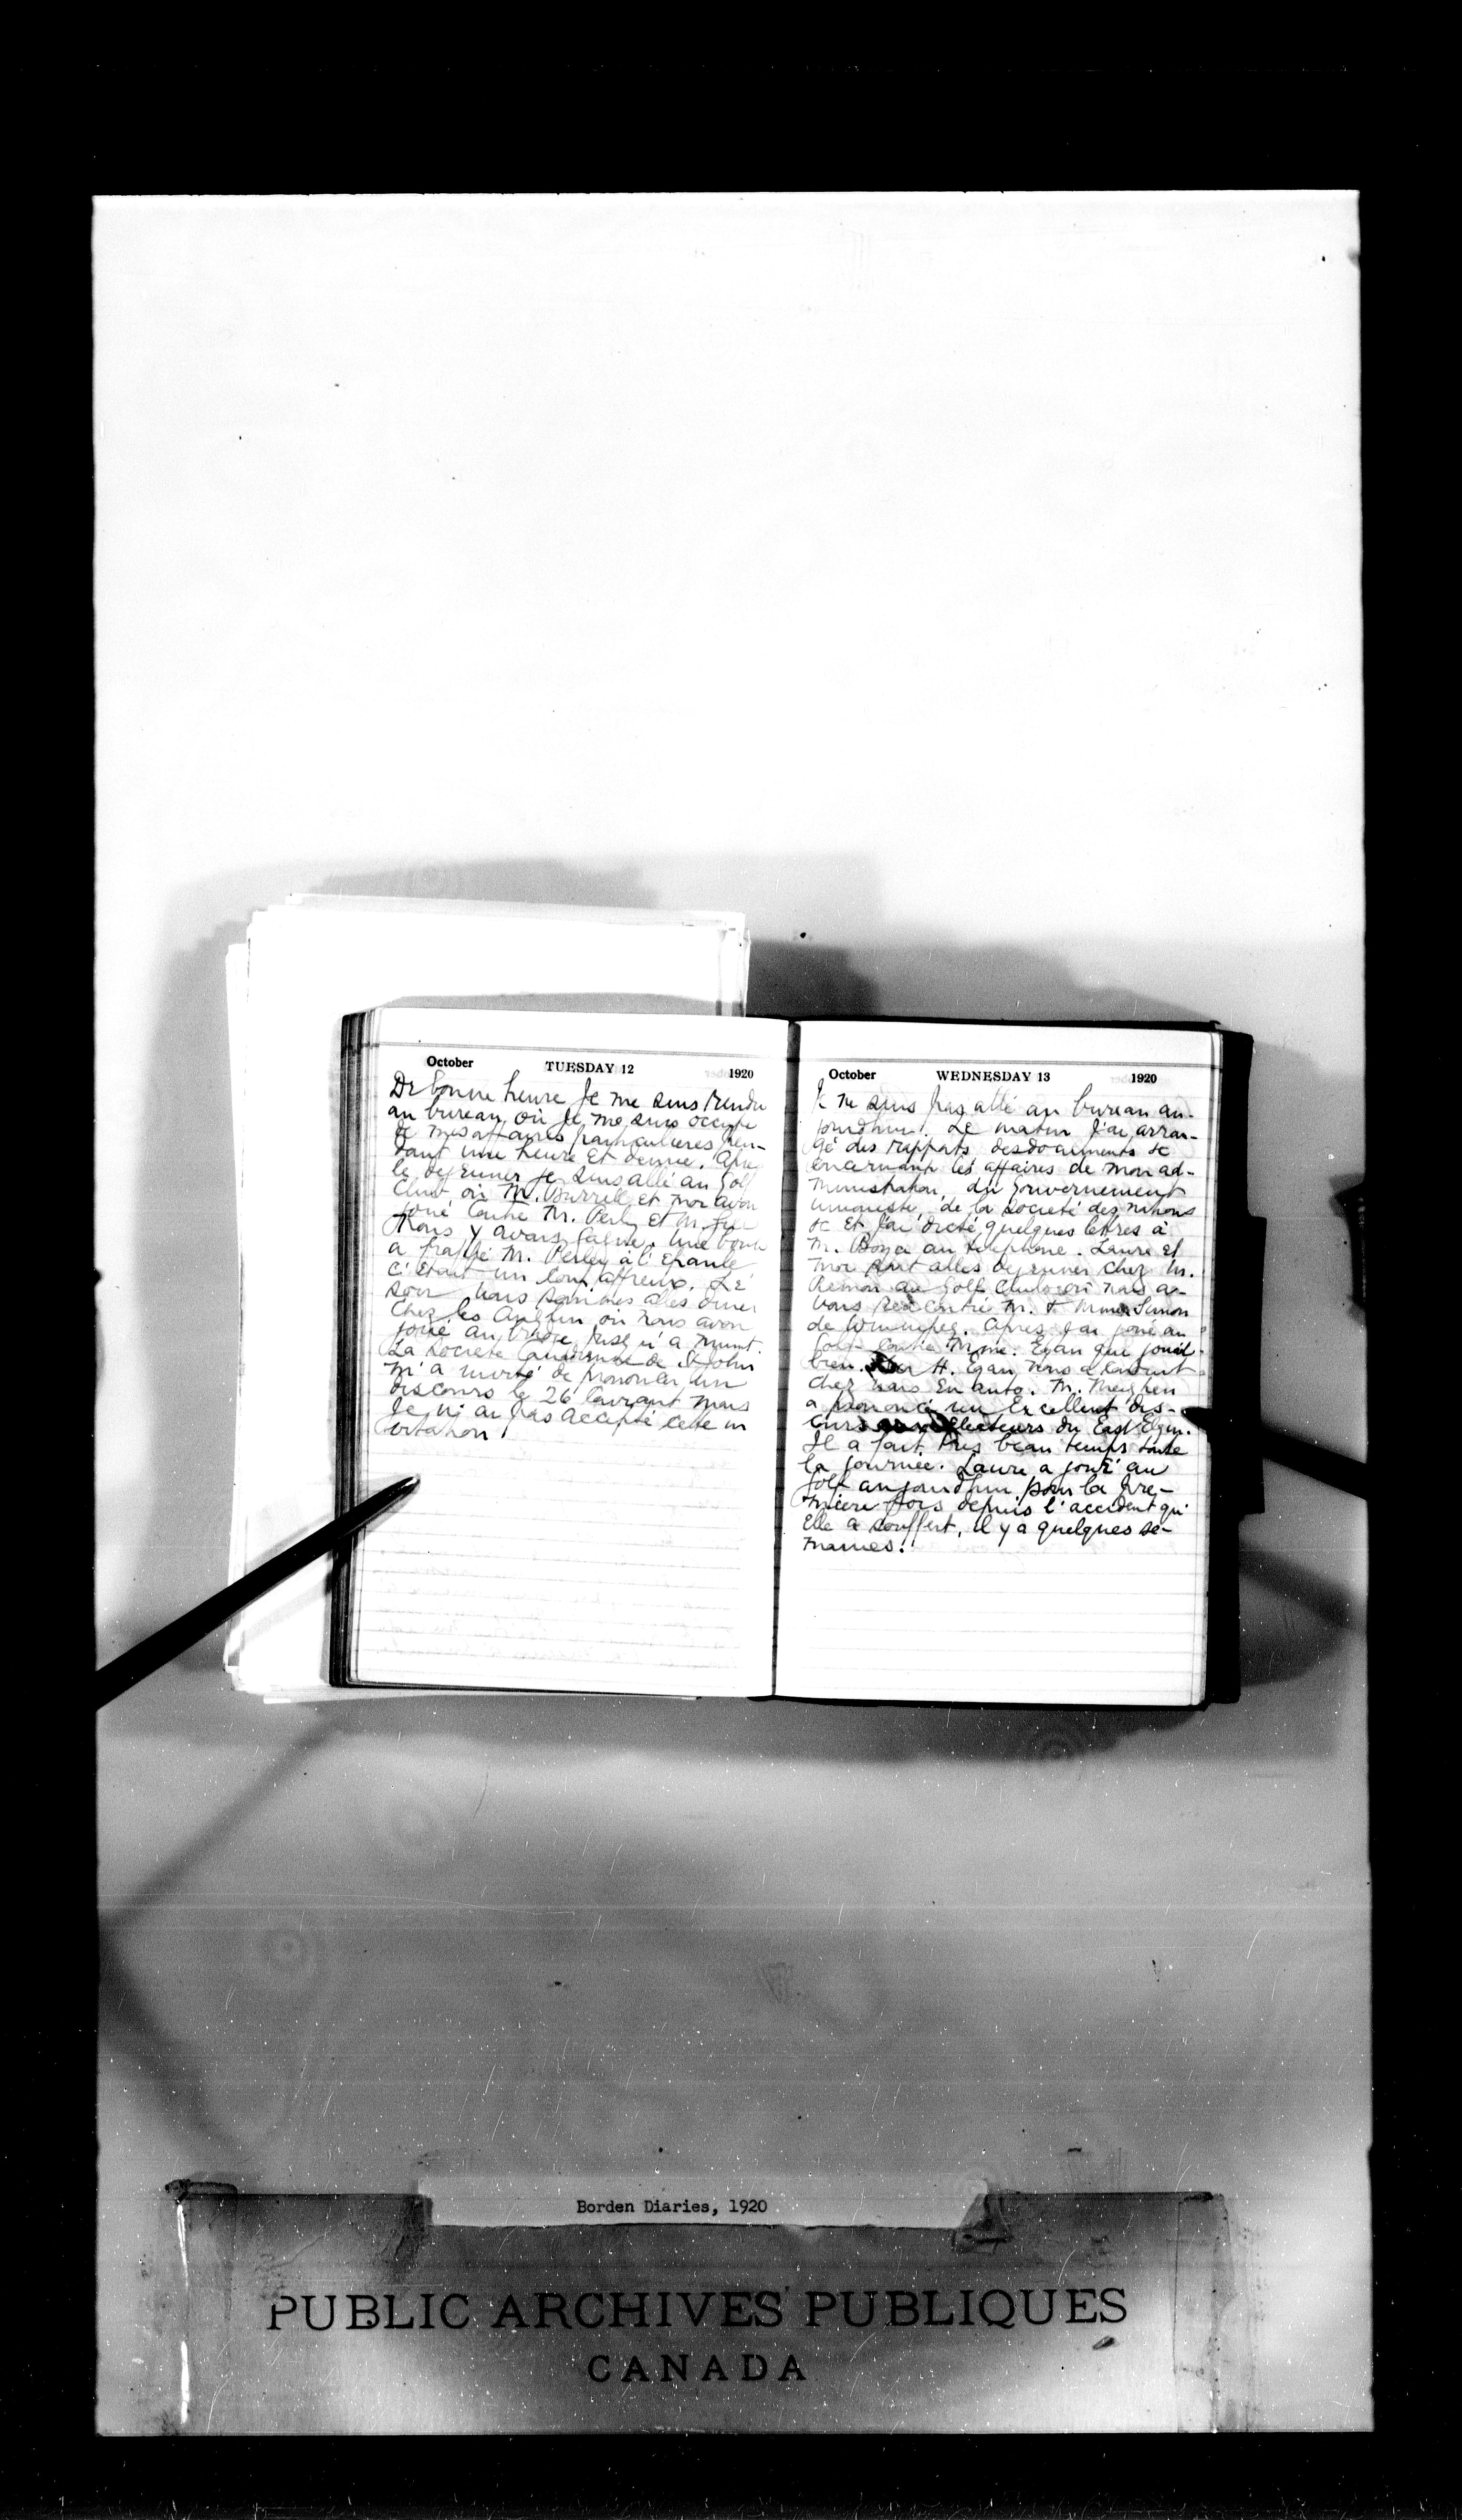 October TUESDAY 12 1920
De bonne heure je me suis rendu
au bureau, où je me suis occupé
de mes affaires particulieres pen-
dant une heure et demie. Apre
le dejeuner je suis allé au Golf
Club où M. Burrell et moi avon
joué contre M. Perley et M.
Nous y avons gagné. Une boule
a frappé M. Perley à l'epaule
C'etait un coup affreux. Le
soir nous sommes allés diner
chez les Anglin où nous avon
joué au bridge jusqu'a minuit.
La Societé Canadienne de St John
m'a invité de prononcer un
discours le 26 courant mais
je n'ai pas accepté cette in
vitation
October WEDNESDAY 13 1920
Je ne suis pas allé au bureau au-
jourdhui. Le matin j'ai arran-
gé des rapports des documents &c
concernant les affaires de mon ad-
ministration, du Gouvernement
unioniste, de la Societé des nations
&c et j'ai dicté quelques lettres à
M. Boyce au telephone. Laura et
moi sont allés dejeuner chez M.
au Golf Club où nous a-
vons rencontré M. & Mme
de Winnipeg. Apres j'ai joué au
Golf contre M. Egan qui joue
bien. H. Egan nous a conduit
chez nous en auto. M. Meighen
a prononcé un excellent dis-
cours electeurs du East Elgin.
Il a fait tres beau temps toute
la journée. Laura a joué au
Golf aujourdhui pour la pre-
miere fois depuis l'accident qu'
elle a souffert, il y a quelques se-
maines.
Borden Diaries, 1920
PUBLIC ARCHIVES PUBLIQUES
CANADA